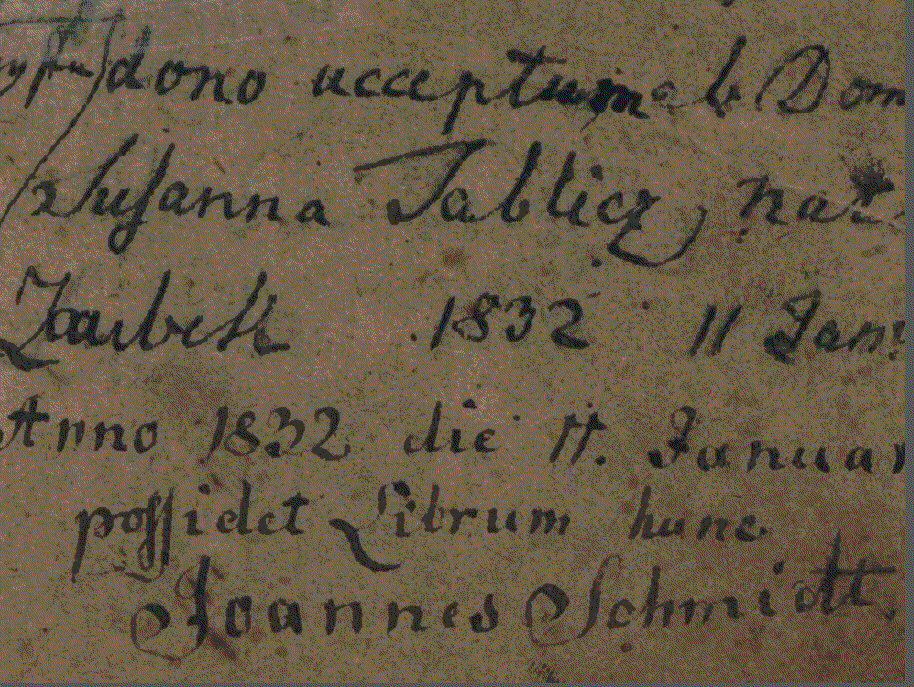 dono acceptum ab Dom
Susanna Tablicz, nat
1832 11 Jan
Anno 1832 die 11. Januar
possidet Librum hunc
Joannes Schmidt.